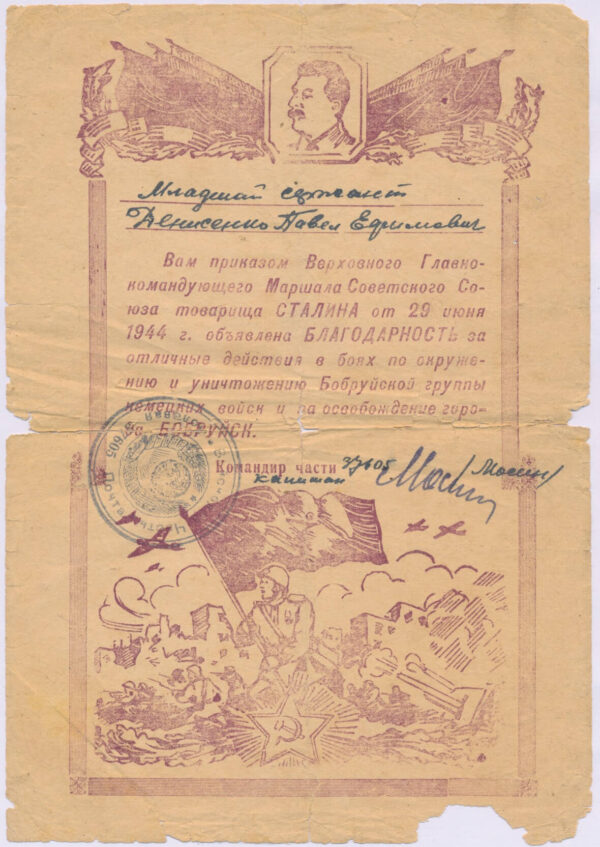 Младший сержант
Денисенко Павел Ефимович
Вам приказом Верховного Главно-
командующего Маршала Советского Со-
юза товарища СТАЛИНА от 29 июня
1944 г. объявлена БЛАГОДАРНОСТЬ за
отличные действия в боях по окруже-
нию и уничтожению Бобруйской группы
немецких войск и за освобождение горо-
да БОБРУЙСК.
Командир части 37605
капитан
/Мосин/
Часть
605